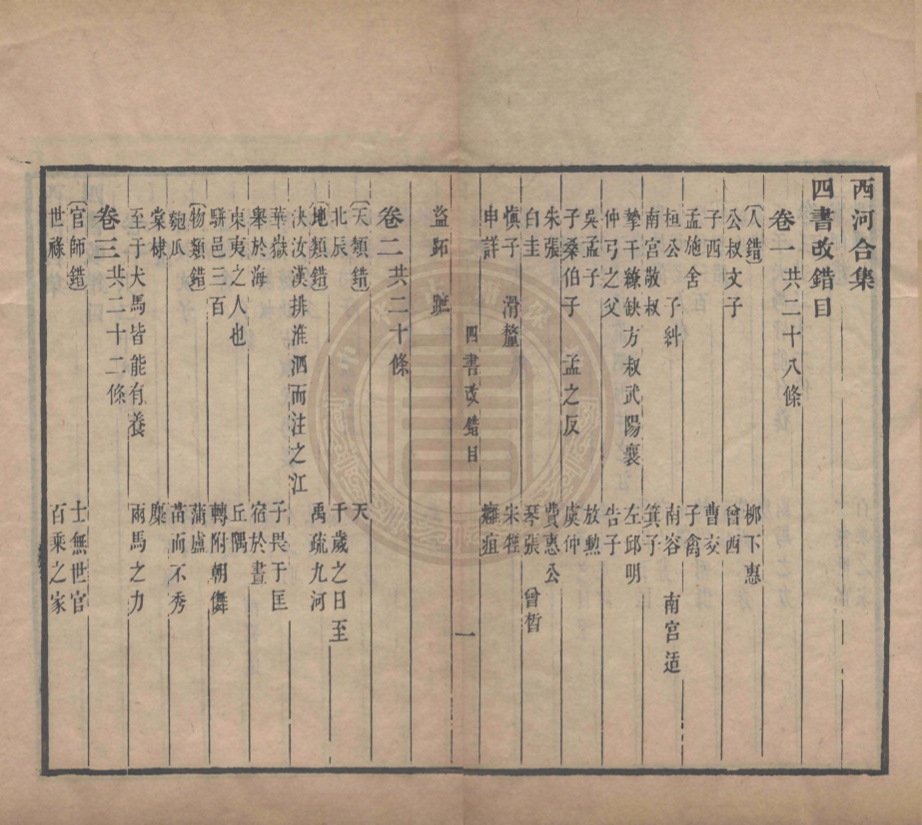 西河合集
四書改錯目
卷一 共二十八條
〔人錯〕 柳下惠
公叔文子 曾西
子西 曹交
孟施舍 子禽
桓公 子糾 南容 南宮适
南宮敬叔 箕子
摯干繚缺方叔武陽襄 左邱明
仲弓之父 告子
吳孟子 放勳
子桑伯子 孟之反 虞仲
朱張 費惠公
白圭 琴張 曾晳
慎子 滑釐 朱
申詳 癰疽
四書改錯目 一
盜跖 蹠
卷二 共二十條
〔天類錯〕 天
北辰 千歲之日至
〔地類錯〕 禹疏九河
決汝漢排淮泗而注之江
華嶽 子畏于匡
舉於海 宿於晝
東夷之人也 丘隅
駢邑三百 轉附朝儛
〔物類錯〕 蒲盧
匏瓜 苗而不秀
棠棣 麋
至于犬馬皆能有養 兩馬之力
卷三 共二十二條
〔官師錯〕 士無世官
世祿 百乘之家